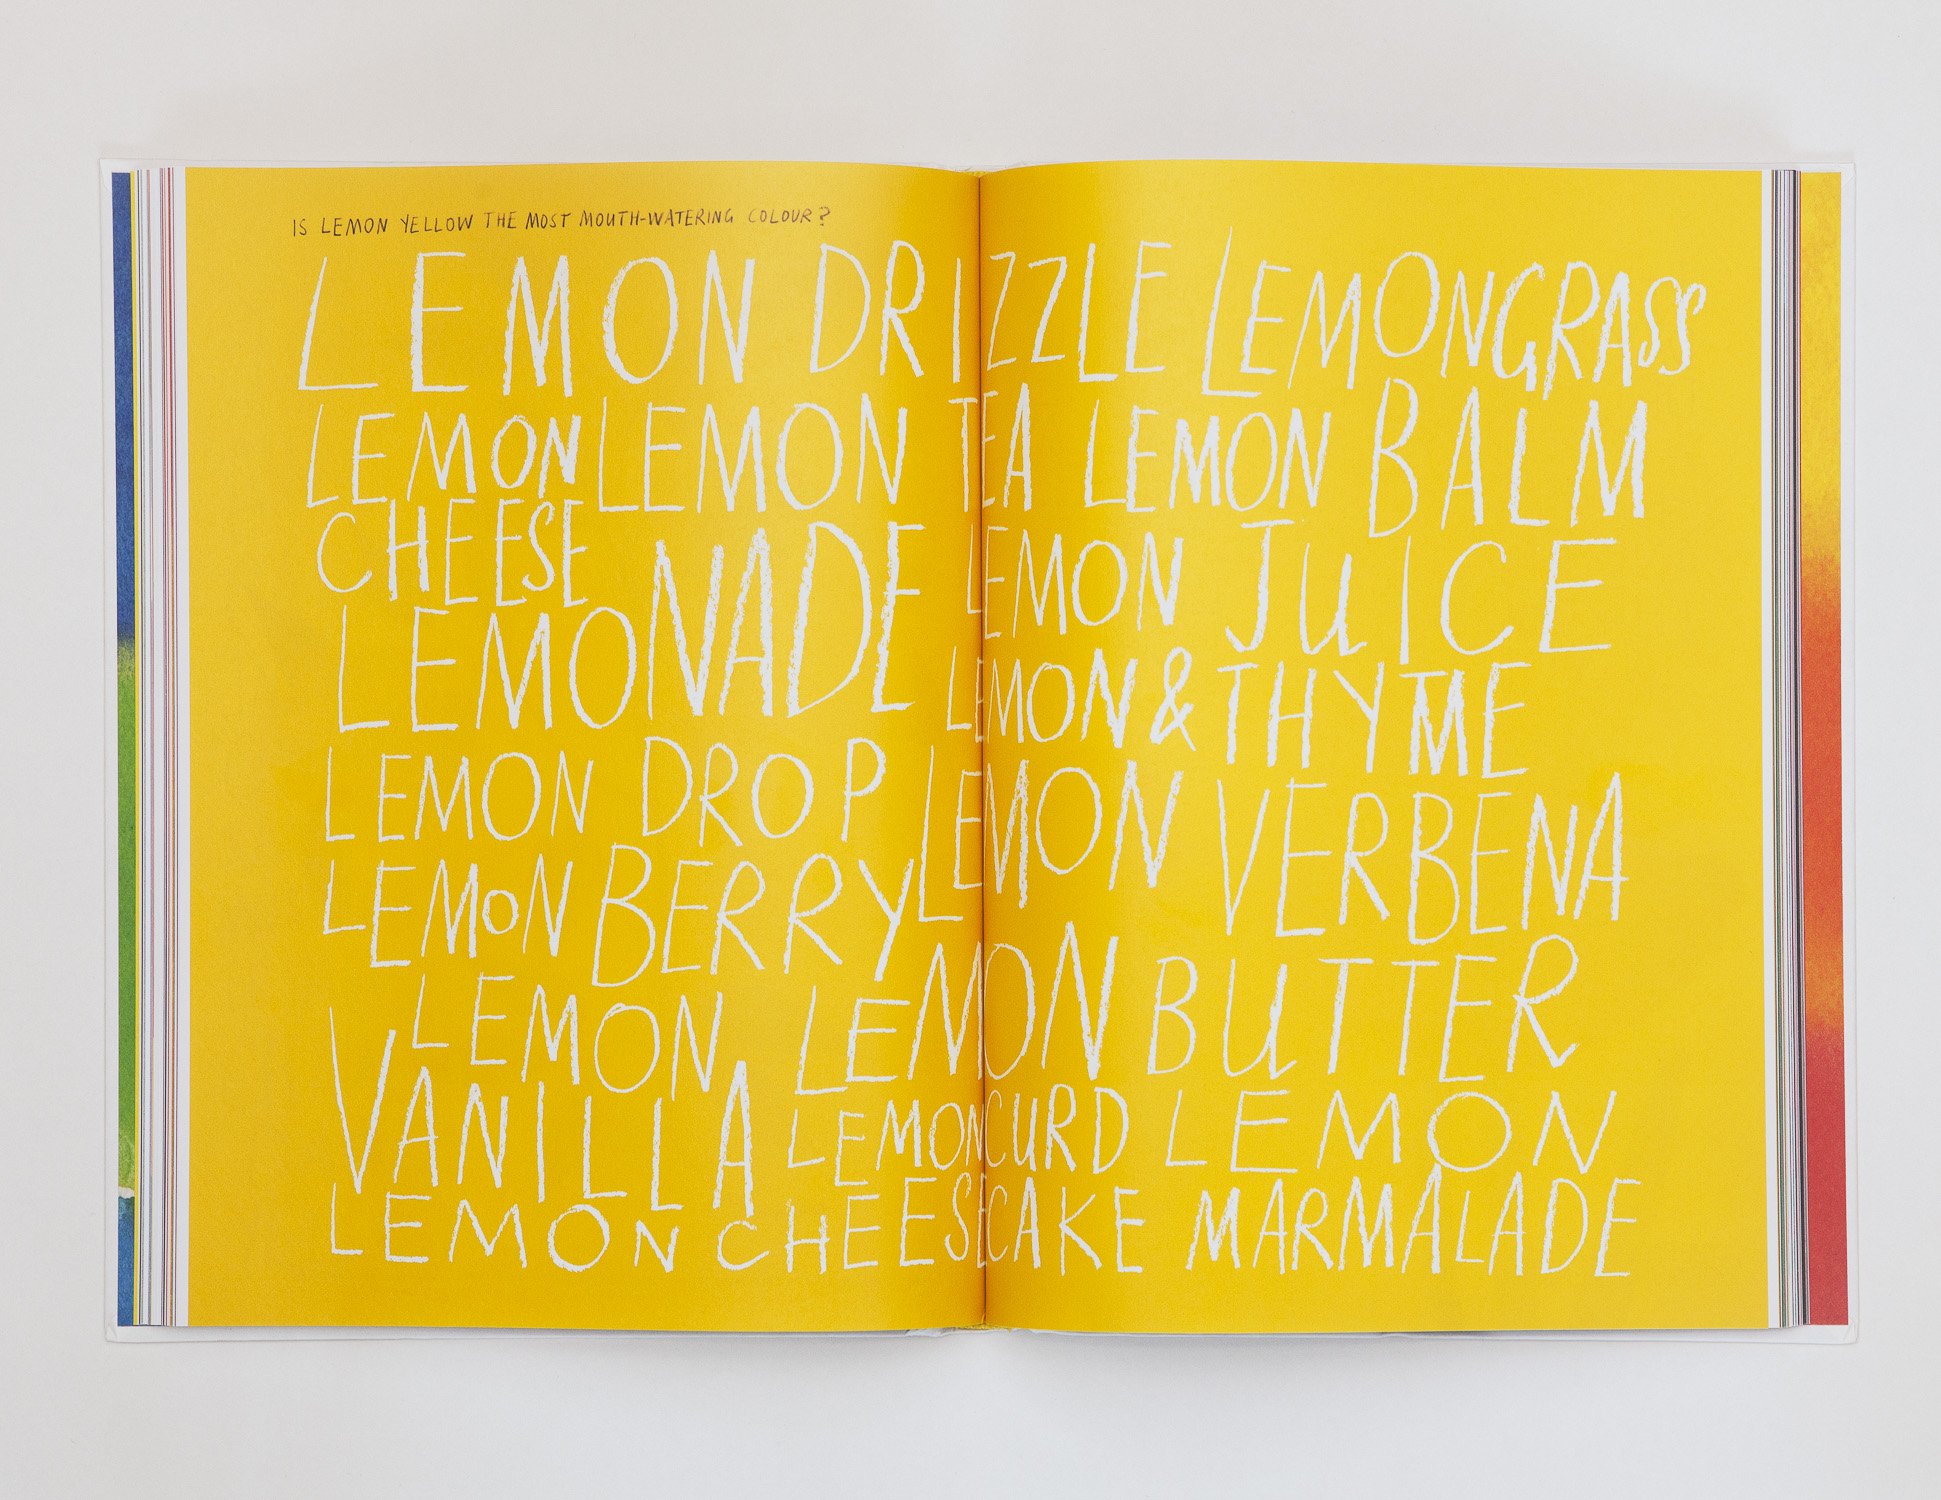 IS LEMON YELLOW THE MOST MOUTH-WATERING COLOUR?
LEMON DRIZZLE LEMONGRASS
LEMON CHEESE
LEMON TEA
LEMON BALM
LEMONADE
LEMON JUICE
LEMON & THYME
LEMON DROP
LEMON VERBENA
LEMON BERRY
LEMON BUTTER
LEMON
VANILLA
LEMON CURD
LEMON
MARMALADE
LEMON CHEESECAKE